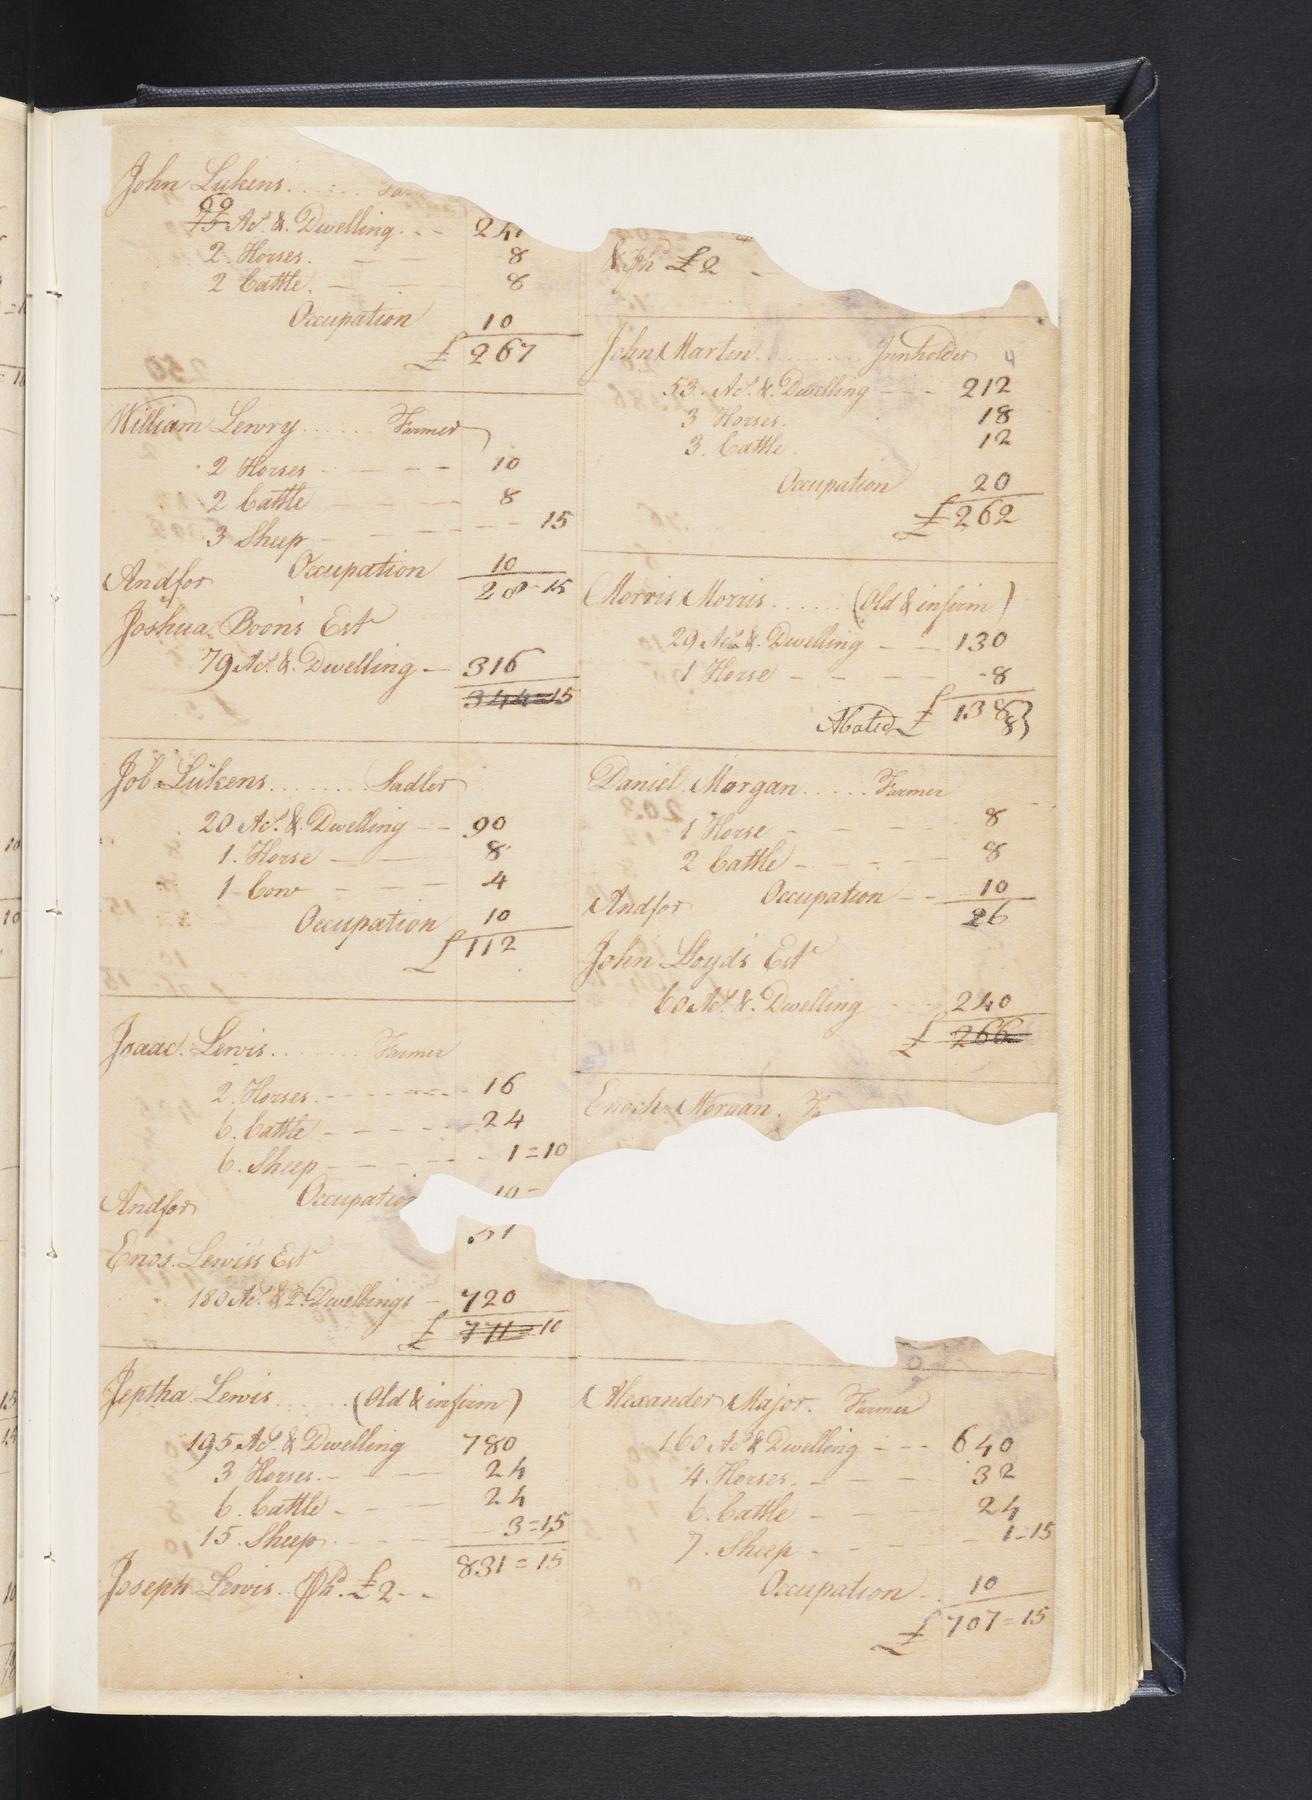 John Lukens
60
75 Acs. & Dwelling 24
2 Horses. 8
2 Cattle. 8
Occupation 10
£ 267
William Lewry Farmer
2 Horses 10
2 Cattle 8
3 Sheep 15
Occupation 10
Andfor 28-15
Joshua Boon's Est
79 Acs. & Dwelling 316
344=15
Job Lukens Sadler
20 Acs. & Dwelling 90
1. Horse 8
1 Cow 4
Occupation 10
£ 112
Isaac Lewis Farmer
2. Horses 16
6. Cattle 24
6. Sheep 1=10
Andfor Occupation 10
51
Enos Lewis's Est
180 Acs. & 2 Dwellings 720
£ 771=10
Jeptha Lewis (Old & infirm)
195 Acs. & Dwelling 780
3 Horses 24
6. Cattle 24
15. Sheep 3=15
831=15
Joseph Lewis £2
£2
John Martin Innholder
53. Acs. & Dwelling 212
3 Horses. 18
3. Cattle 12
Occupation 20
£ 262
Morris Morris (Old & infirm)
29 Acs. & Dwelling 130
1 Horse 8
£ 138
Abated £ 8
Daniel Morgan Farmer
1 Horse 8
2 Cattle 8
Andfor Occupation 10
26
John Lloyd's Est
60 Acs. & Dwelling 240
£ 266
Enoch Morgan.
Alexander Major. Farmer
160 Acs & Dwelling 640
4. Horses 32
6. Cattle 24
7. Sheep 1=15
Occupation 10
£ 707=15